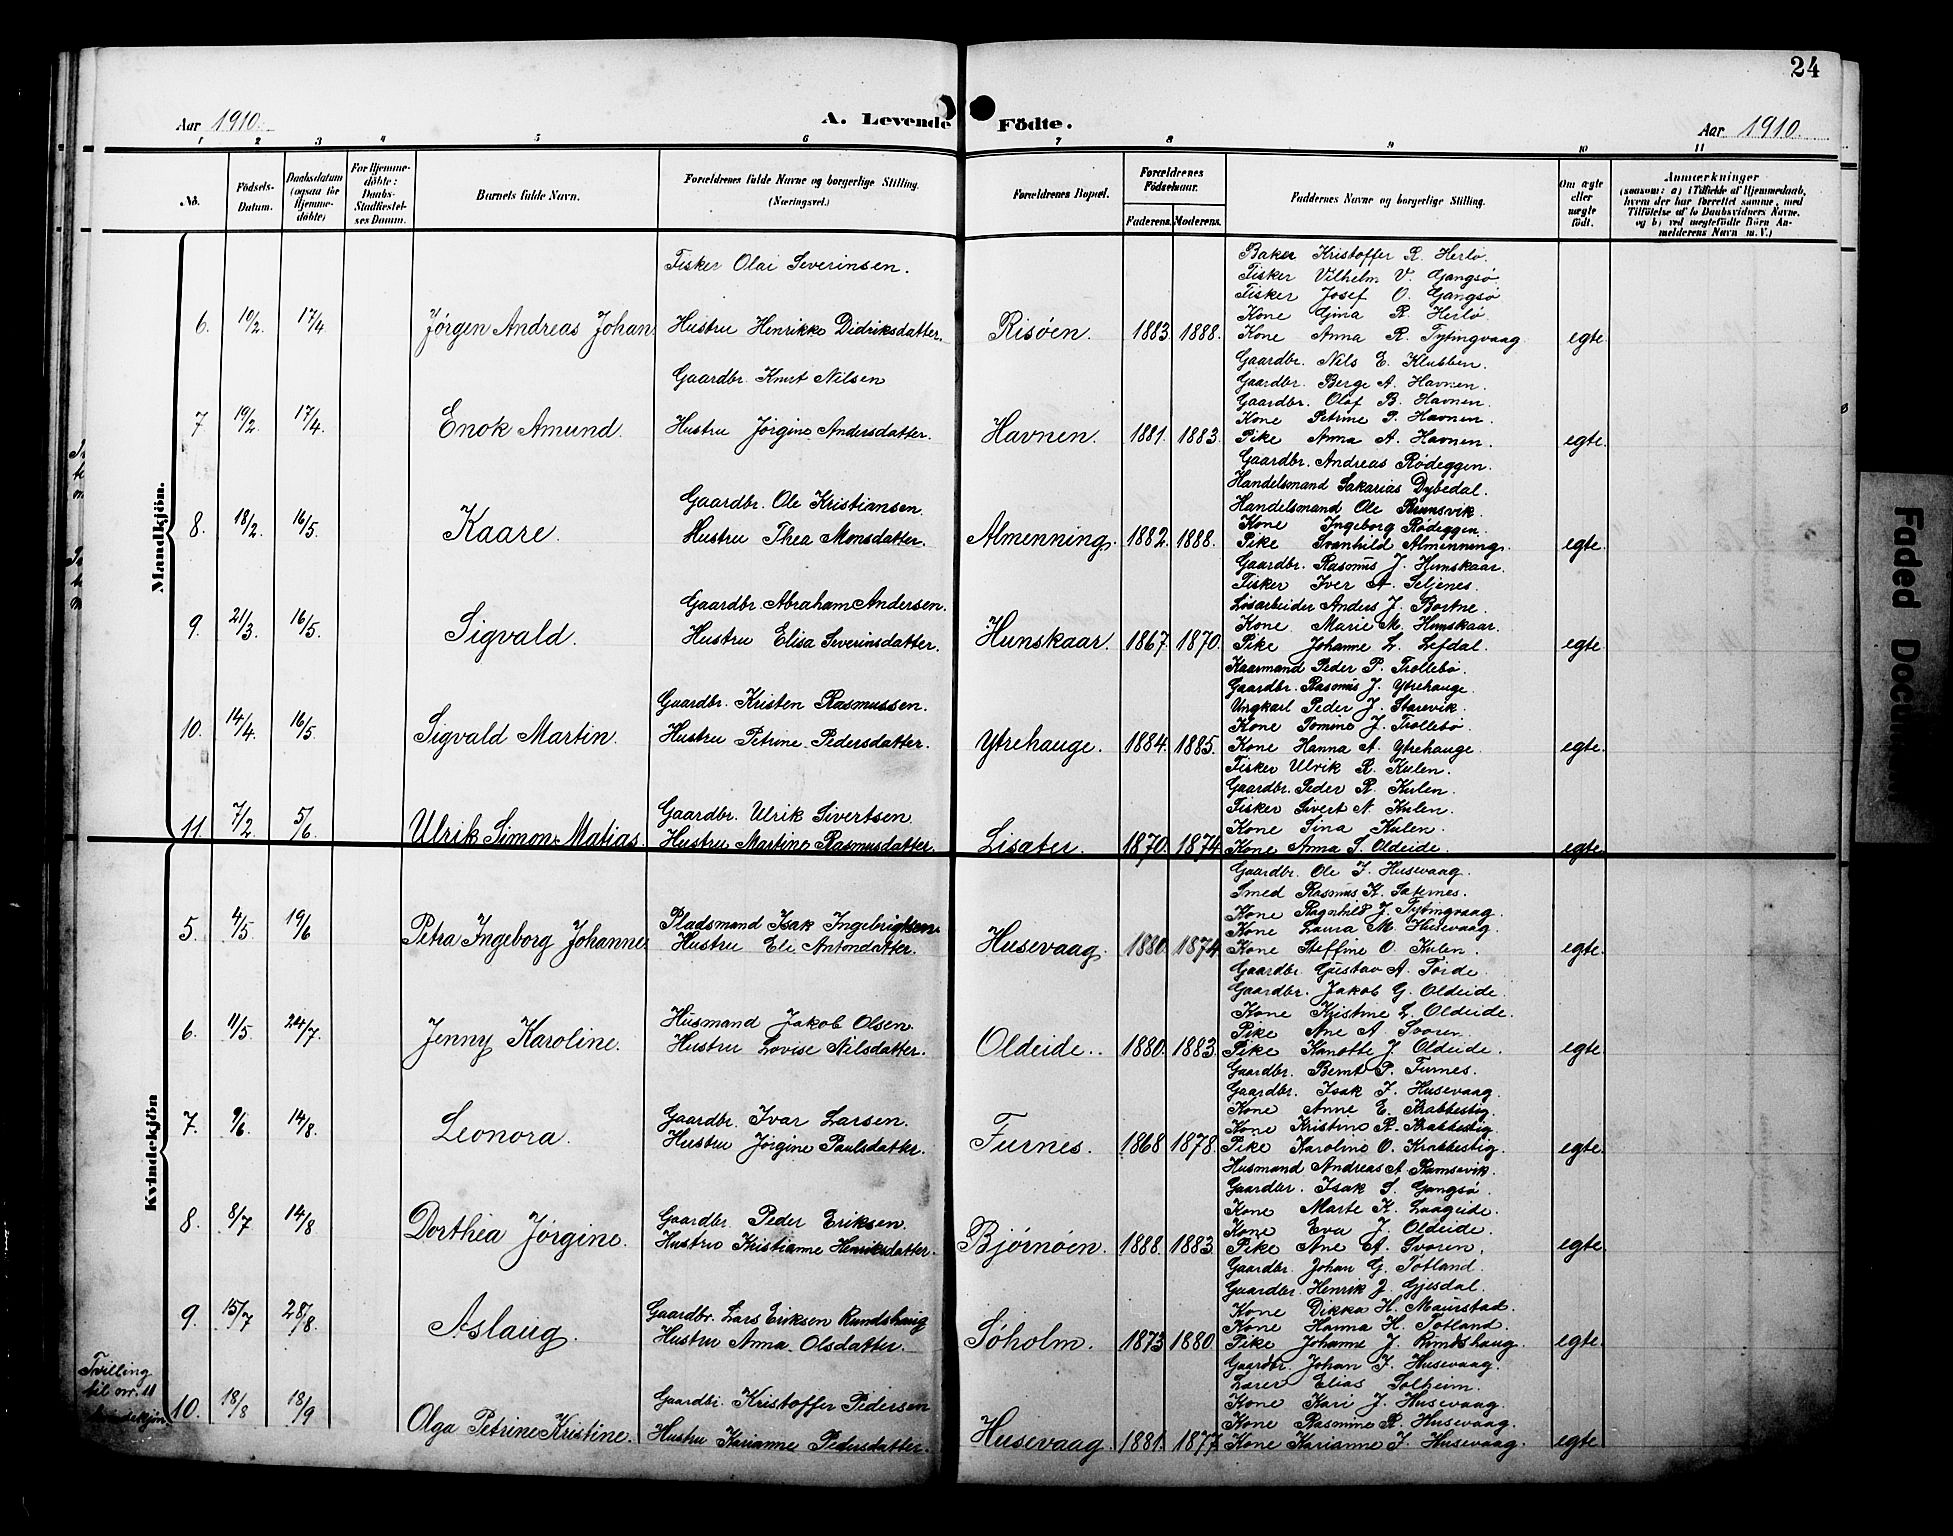 24
Aar 1910.
A. Levende Födte.
Aar 1910.
1 2 3 4 5 6 7 8 9 10 11
No.
Födsels-Datum.
Daabsdatum (ogsaa for Hjemme-döbte)
For Hjemme-döbte: Daabs-Stadfæstel-ses Datum.
Barnets fulde Navn.
Forældrenes fulde Navne og borgerlige Stilling.
(Næringsvei.)
Forældrenes Bopæl.
Forældrenes Födselsaar.
Faderens. Moderens.
Faddernes Navne og borgerlige Stilling.
Om ægte eller uægte födt.
Anmærkninger
(saasom: a) i Tilfælde af Hjemmedaab,
hvem der har forrettet samme, med
Tilföielse af to Daabsvidners Navne,
og b) ved uægtefödte Börn An-
melderens Navn m. V.)
Mandkjön.
Fisker Olai Severinsen.
6. 10/2. 17/4. Jørgen Andreas Johan Hustru Henrikke Didriksdatter. Risøen. 1883. 1888. egte.
Baker Kristoffer R. Herlø.
Fisker Vilhelm V. Gangsø
Fisker Josef O. Gangsø
Kone Gina R. Herlø.
Kone Anna R. Tytingvaag
Gaardbr. Knut Nilsen
7 19/2. 17/4. Enok Amund. Hustru Jørgine Andersdatter. Havnen. 1881. 1883. egte.
Gaardbr. Nils E. Klubben.
Gaardbr. Berge A. Havnen.
Gaardbr. Olaf B. Havnen.
Kone Petrine P. Havnen.
Pike Anna A. Havnen.
Gaardbr. Ole Kristiansen.
8. 18/2. 16/5. Kaare. Hustru Thea Monsdatter. Almenning. 1882. 1888. egte.
Gaardbr. Andreas Rødeggen.
Handelsmand Sakarias Dybedal.
Handelsmand Ole Brunsvik.
Kone Ingeborg Rødeggen.
Pike Svanhild Almenning.
Gaardbr. Abraham Andersen.
9. 21/3. 16/5. Sigvald. Hustru Elisa Severinsdatter. Hunskaar. 1867. 1870. egte.
Gaardbr. Rasmus J. Hunskaar.
Fisker Iver A. Seljenes.
Løsarbeider Anders J. Bortne.
Kone Marie M. Hunskaar.
Pike Johanne L. Lefdal.
Gaardbr. Kristen Rasmussen.
10. 14/4. 16/5. Sigvald Martin. Hustru Petrine Pedersdatter. Ytrehauge. 1884. 1885. egte.
Kaarmand Peder P. Trollebø
Gaardbr. Rasmus J. Ytrehauge.
Ungkarl Peder J. Starevik.
Kone Tomine J. Trollebø
Kone Hanna A. Ytrehauge
Gaardbr. Ulrik Sivertsen.
11. 7/2. 5/6. Ulrik Simon Matias Hustru Martine Rasmusdatter. Lisæter. 1870. 1874. egte.
Fisker Ulrik R. Kulen.
Gaardbr. Peder R. Kulen.
Fisker Sivert N. Kulen.
Kone Sina Kulen.
Kone Anna S. Oldeide.
Kvindekjön
Pladsmand Isak Ingebrigtsen
5. 4/5. 19/6 Petra Ingeborg Johanne Hustru Eli Antondatter. Husevaag. 1880. 1874. egte.
Gaardbr. Ole J. Husevaag.
Smed Rasmus K. Sæternes.
Kone Ragnhild J. Tytingvaag.
Kone Laura M. Husevaag.
Kone Steffine O. Kulen.
Husmand Jakob Olsen.
6. 11/5. 24/7. Jenny Karoline. Hustru Lovise Nilsdatter. Oldeide. 1880. 1883. egte.
Gaardbr. Gustav A. Førde.
Gaardbr. Jakob G. Oldeide.
Kone Kristine L. Oldeide.
Pike Ane A. Svoren.
Pike Kanotte J. Oldeide.
Gaardbr. Ivar Larsen.
7. 9/6. 14/8. Leonora. Hustru Jørgine Paulsdatter. Furnes. 1868 1878. egte.
Gaardbr. Bernt P. Furnes.
Gaardbr. Isak J. Husevaag.
Kone Anne E. Krabbestig.
Kone Kristine R. Krabbestig.
Pike Karoline O. Krabbestig.
Gaardbr. Peder Eriksen.
8. 8/7 14/8 Dorthea Jørgine. Hustru Kristianne Henriksdatter. Bjørnøen. 1888. 1883. egte.
Husmand Andreas A. Ramsevik.
Gaardbr. Isak S. Gangsø.
Kone Marte K. Laageide.
Kone Eva J. Oldeide.
Pike Ane A. Svoren.
Gaardbr. Lars Eriksen Rundshaug
9. 15/7 28/8. Aslaug. Hustru Anna Olsdatter. Søholm. 1873 1880. egte.
Gaardbr. Johan G. Totland.
Gaardbr. Henrik J. Gjesdal.
Kone Dikka H. Maurstad.
Kone Hanna H. Totland.
Pike Johanne J. Rundshaug.
Tvilling til nr. 11 kvindekjøn
Gaardbr. Kristoffer Pedersen
10. 18/8 18/9 Olga Petrine Kristine. Hustru Karianne Pedersdatter. Husevaag. 1881. 1877. egte
Gaardbr. Johan J. Husevaag.
Lærer Elias Solheim.
Kone Kari J. Husevaag.
Kone Rasmine R. Husevaag.
Kone Karianne J. Husevaag.
Faded